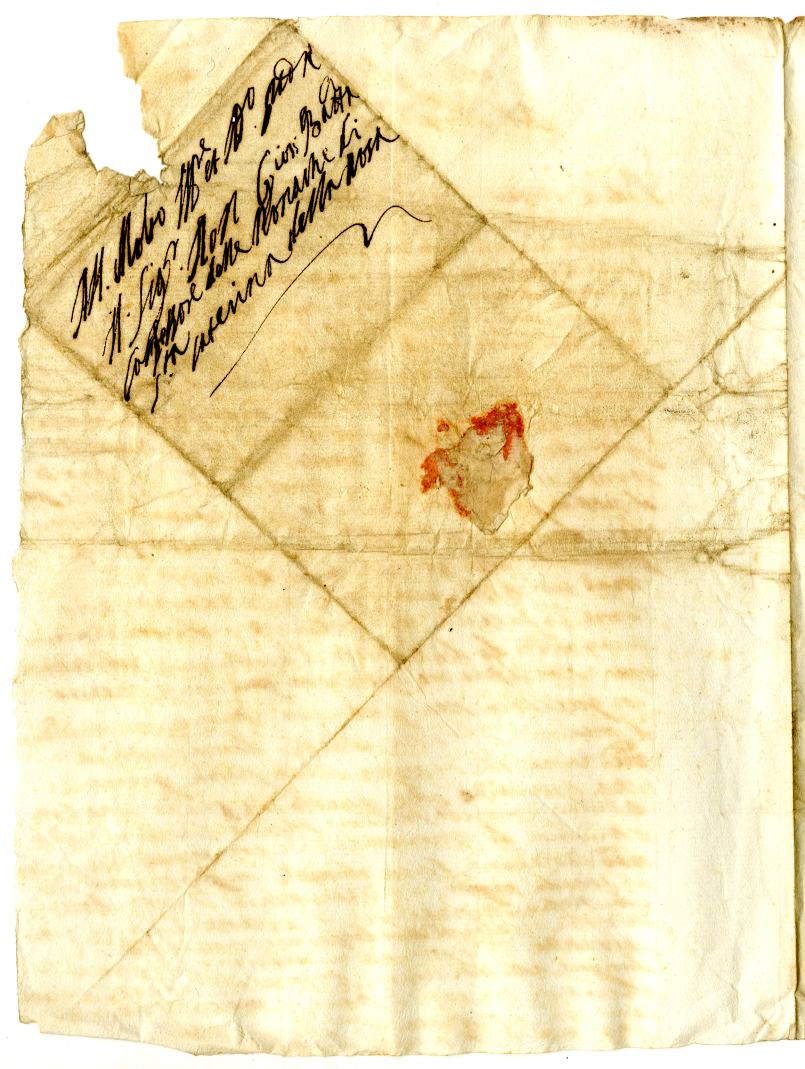 All. Molto Ill.re et R.do
Il Sig.r Don Giov. Batta
Confessore delle Monache di
S.ta Caterina della Rosa